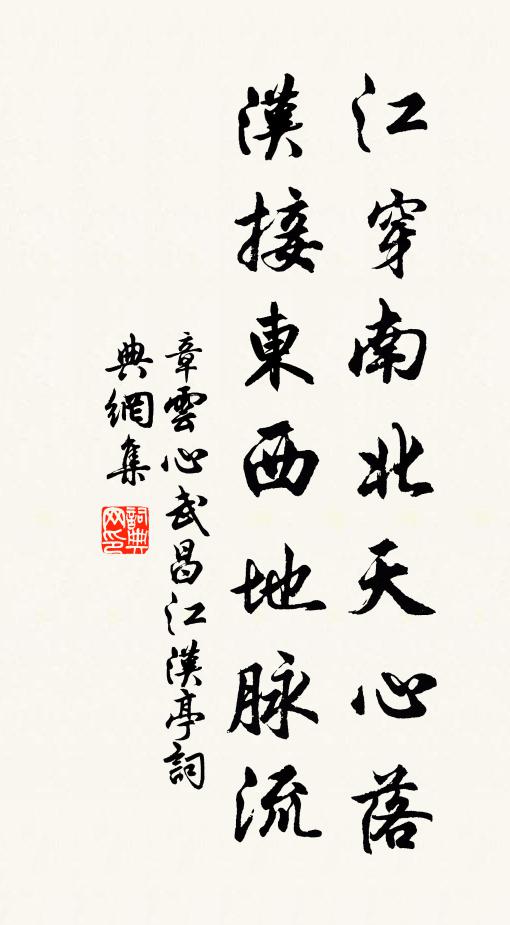 江穿南北天心落
漢接東西地脉流
章雲心武昌江漢亭詞
典網集
詞典
网印